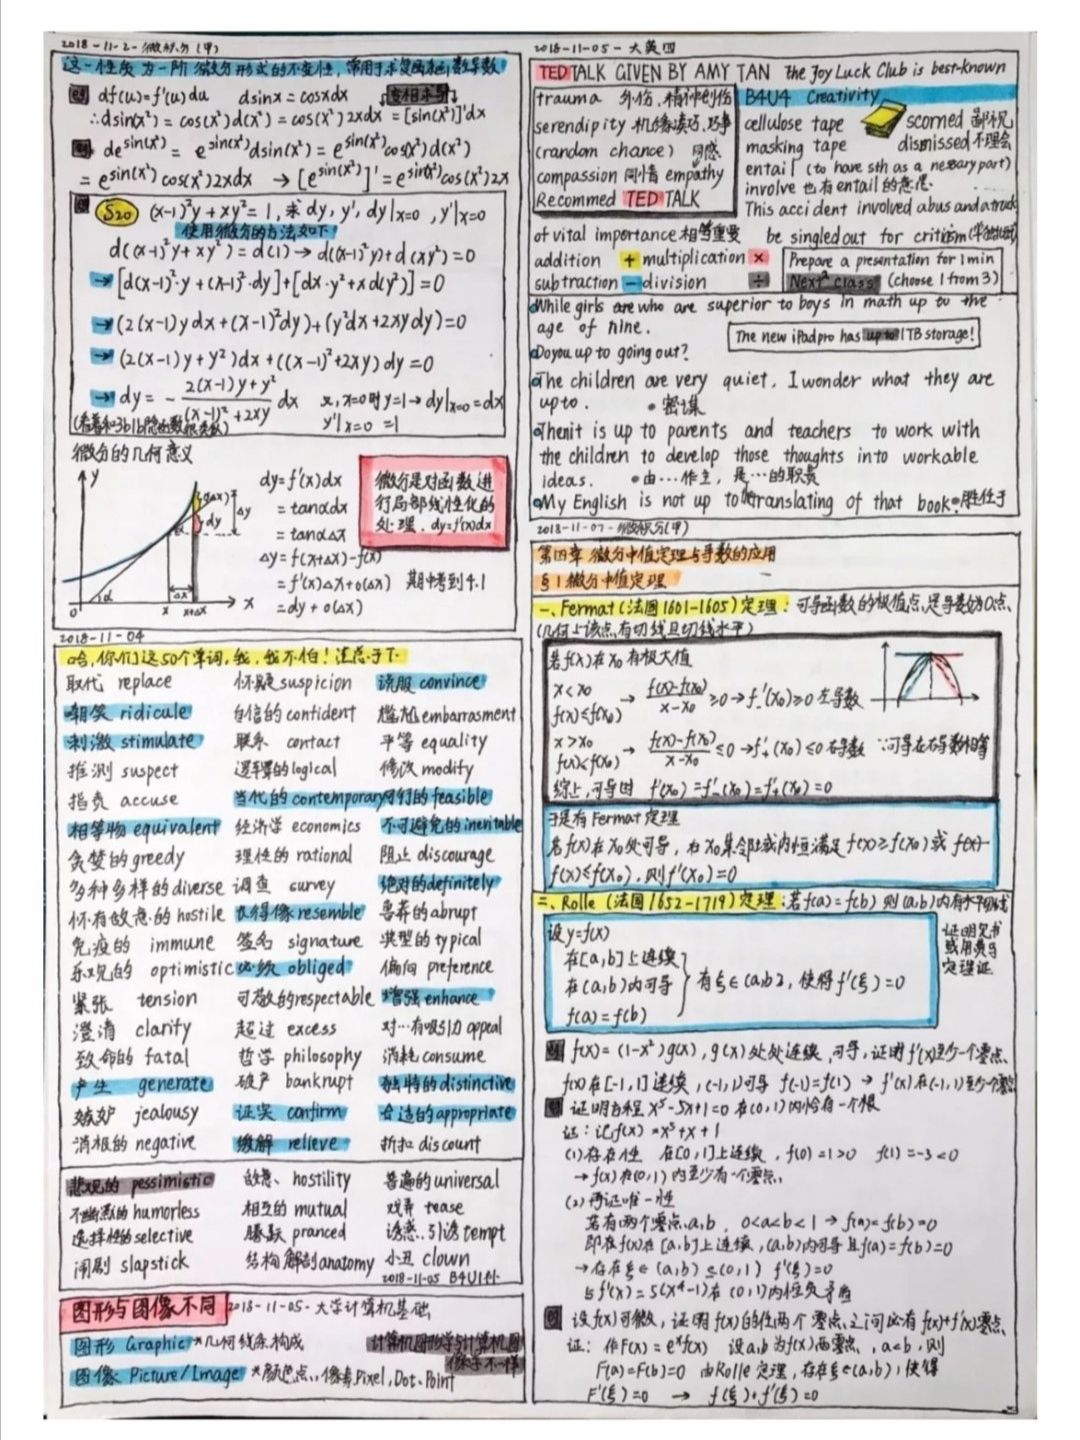 2018-11-2-微积分(甲)
这一性质为一阶微分形式的不变性,常用于求复合函数导数
例 df(u)=f'(u)du dsinx=cosxdx
∴dsin(x²)=cos(x²)d(x²)=cos(x²)2xdx=[sin(x²)]'dx
例 de^sin(x²)= e^sin(x²)dsin(x²)=e^sin(x²)cos(x²)d(x²)
=e^sin(x²)cos(x²)2xdx → [e^sin(x²)]'=e^sin(x²)cos(x²)2x
例 S20 (x-1)²y+xy²=1,求dy,y',dy|x=0,y'|x=0
使用微分的方法如下
d((x-1)²y+xy²)=d(1)→d(x-1)²y)+d(xy²)=0
→[d(x-1)²·y+(x-1)²·dy]+[dx·y²+xd(y²)]=0
→(2(x-1)ydx+(x-1)²dy)+(y²dx+2xydy)=0
→(2(x-1)y+y²)dx+((x-1)²+2xy)dy=0
→dy=-2(x-1)y+y²/(x-1)²+2xy dx 又,x=0时y=1→dy|x=0=dx
y'|x=0=1
微分的几何意义
y
o(Δx)
dy
Δy
α
Δx
0 x x+Δx x
dy=f'(x)dx
=tanαdx
=tanαΔx
Δy=f(x+Δx)-f(x)
=f'(x)Δx+o(Δx) 期中考到4.1
=dy+o(Δx)
微分是对函数进
行局部线性化的
处理.dy=f'(x)dx
2018-11-04
哈,你们这50个单词,我,我不怕!
取代 replace 怀疑 suspicion 说服 convince
嘲笑 ridicule 自信的 confident 尴尬 embarrasment
刺激 stimulate 联系 contact 平等 equality
推测 suspect 逻辑的 logical 修改 modify
指责 accuse 当代的 contemporary 可行的 feasible
相等物 equivalent 经济学 economics 不可避免的 inenitable
贪婪的 greedy 理性的 rational 阻止 discourage
多种多样的 diverse 调查 survey 绝对的 definitely
怀有敌意的 hostile 长得像 resemble 鲁莽的 abrupt
免疫的 immune 签名 signature 典型的 typical
乐观的 optimistic 必须 obliged 偏向 preference
紧张 tension 可敬的 respectable 增强 enhance
澄清 clarity 超过 excess 对…有吸引力 appeal
致命的 fatal 哲学 philosophy 消耗 consume
产生 generate 破产 bankrupt 独特的 distinctive
嫉妒 jealousy 证实 confirm 合适的 appropriate
消极的 negative 缓解 relieve 折扣 discount
悲观的 pessimistic 敌意、hostility 普遍的 universal
不幽默的 humorless 相互的 mutual 戏弄 tease
选择性的 selective 腾跃 pranced 诱惑.引诱 tempt
闹剧 slapstick 结构解剖 anatomy 小丑 clown
2018-11-05 B4U1
图形与图像不同 2018-11-05-大学计算机基础
图形 Graphic *几何线条构成
计算机图形学与计算机图
像学不一样
图像 Picture/Image *颜色点,像素 Pixel, Dot, Point
2018-11-05-大英四
TED TALK GIVEN BY AMY TAN the Joy Luck Club is best-known
trauma 外伤,精神创伤
serendipity 机缘凑巧,巧事
(random chance) 同感
compassion 同情 empathy
Recommed TED TALK
B4U4 Creativity
cellulose tape scorned 鄙视
masking tape dismissed 不理会
entail (to have sth as a nessary part)
involve 也有entail的意思.
This accident involved abus and a truck
of vital importance 相当重要 be singled out for critism
addition + multiplication ×
subtraction − division ÷
Prepare a presentation for 1min
Next² class (choose 1 from 3)
While girls are who are superior to boys in math up to the
age of nine.
The new iPadpro has up to 1TB storage!
Do you up to going out?
The children are very quiet, I wonder what they are
up to. •密谋
Thenit is up to parents and teachers to work with
the children to develop those thoughts into workable
ideas. •由…作主,是…的职责
My English is not up to the translating of that book•胜任于
2018-11-07-微积分(甲)
第四章 微分中值定理与导数的应用
§1 微分中值定理
一、Fermat(法国1601-1605)定理:可导函数的极值点,是导数为0点、
(几何上该点有切线且切线水平)
若f(x)在x₀有极大值
x<x₀
f(x)≤f(x₀) → f(x)-f(x₀)/x-x₀ ≥0→f'₋(x₀)≥0 左导数
x>x₀
f(x)<f(x₀) → f(x)-f(x₀)/x-x₀ ≤0→f'₊(x₀)≤0 右导数 ∵可导左右导数相等
综上,可导时 f'(x₀)=f'₋(x₀)=f'₊(x₀)=0
于是有Fermat定理
若f(x)在x₀处可导,在x₀某邻域内恒满足f(x)≥f(x₀)或f(x)
f(x)≤f(x₀),则f'(x₀)=0
二、Rolle(法国1652-1719)定理:若f(a)=f(b)则(a,b)内有水平切线
设y=f(x)
在[a,b]上连续
在(a,b)内可导 } 有ξ∈(a,b),使得f'(ξ)=0
f(a)=f(b)
证明见书
或用费马
定理证
例 f(x)=(1-x²)g(x),g(x)处处连续,可导,证明f'(x)至少一个零点、
f(x)在[-1,1]连续,(-1,1)可导 f(-1)=f(1) → f'(x)在(-1,1)至少个零点
例 证明方程x⁵-5x+1=0在(0,1)内恰有一个根
证:记f(x)=x⁵+x+1
(1)存在性 在[0,1]上连续,f(0)=1>0 f(1)=-3<0
→f(x)在(0,1)内至少有一个零点
(2)再证唯一性
若有两个零点a,b, 0<a<b<1→f(a)=f(b)=0
即在f(x)在[a,b]上连续,(a,b)内可导且f(a)=f(b)=0
→存在ξ∈(a,b)≤(0,1) f'(ξ)=0
与f'(x)=5(x⁴-1)在(0,1)内恒负矛盾
例 设f(x)可微,证明f(x)的任两个零点之间必有f(x)+f'(x)零点
证:作F(x)=eˣf(x) 设a,b为f(x)两零点,a<b,则
F(a)=F(b)=0 由Rolle定理,存在ξ∈(a,b),使得
F'(ξ)=0 → f(ξ)+f'(ξ)=0